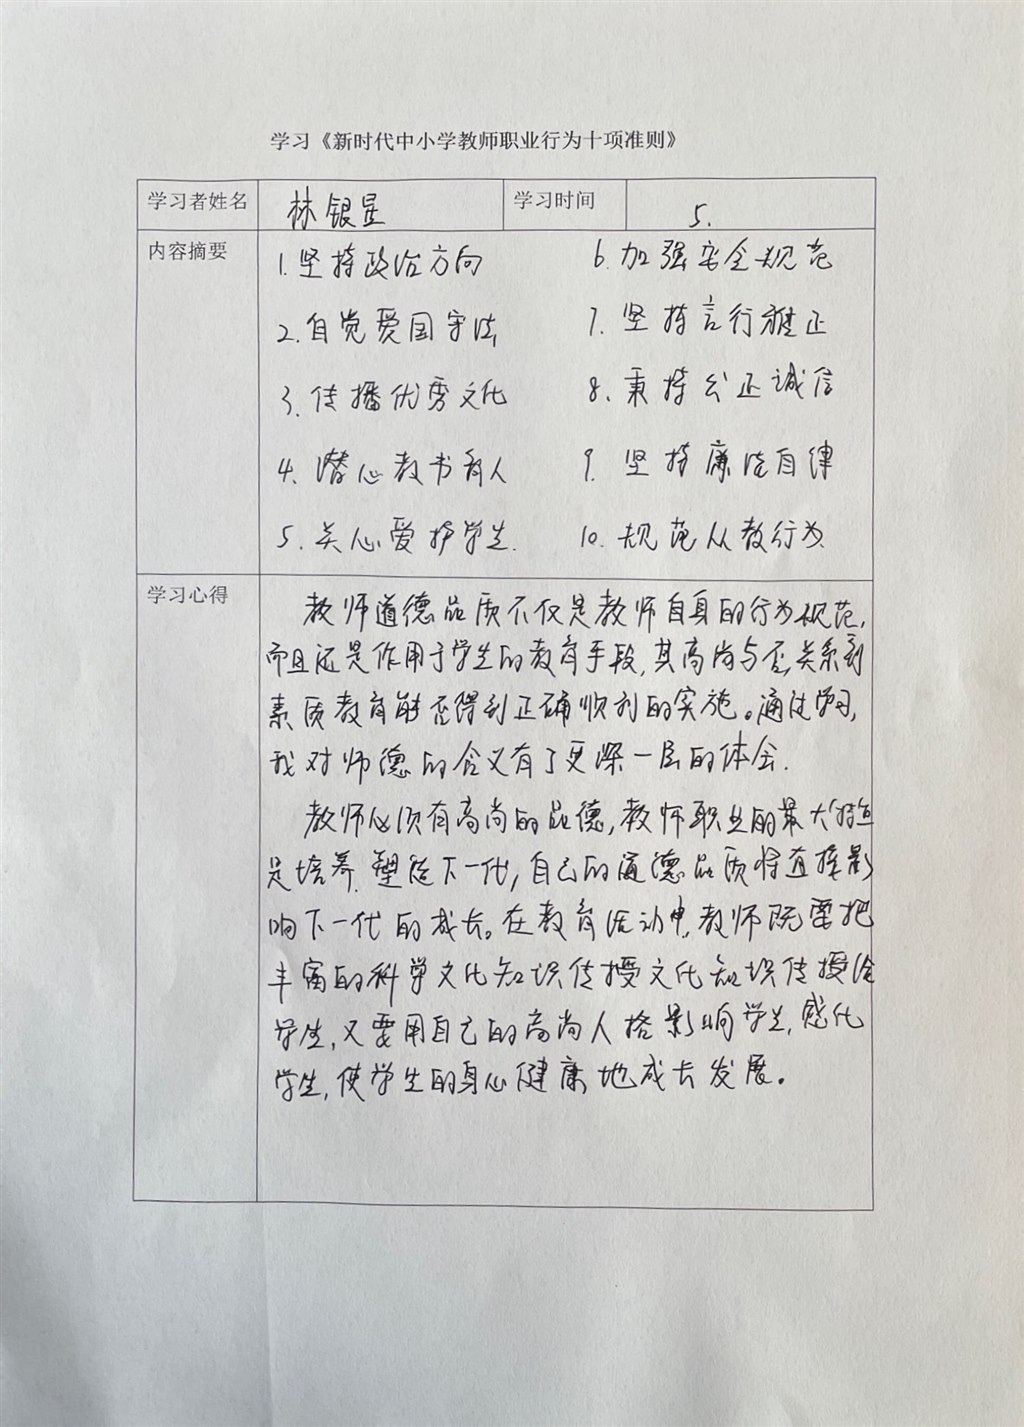 学习《新时代中小学教师职业行为十项准则》
学习者姓名 林银星 学习时间 5.
内容摘要
1.坚持政治方向 6.加强安全规范
2.自觉爱国守法 7.坚持言行雅正
3.传播优秀文化 8.秉持公正诚信
4.潜心教书育人 9.坚持廉洁自律
5.关心爱护学生. 10.规范从教行为
学习心得
教师道德品质不仅是教师自身的行为规范,
而且还是作用于学生的教育手段,其高尚与否,关系到
素质教育能否得到正确顺利的实施。通过学习,
我对师德的含义有了更深一层的体会.
教师必须有高尚的品德,教师职业的最大特点
是培养、塑造下一代,自己的道德品质将直接影
响下一代的成长。在教育活动中,教师既要把
丰富的科学文化知识传授文化知识传授给
学生,又要用自己的高尚人格影响学生,感化
学生,使学生的身心健康地成长发展。